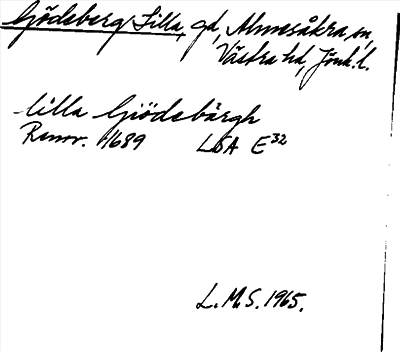 Gödeberg Lilla, gd, Almesåkra sn,
Västra hd, Jönk. l.
lilla Giödebärgh
Renov. 1689 LSA E32
L.M.S. 1965.